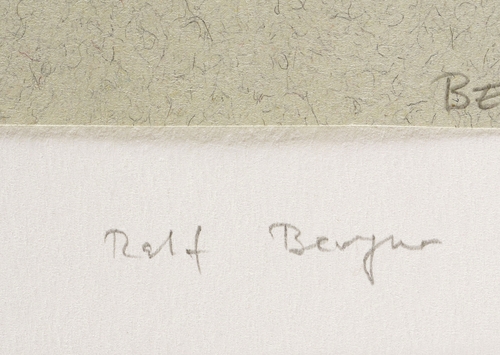 BE
Ralf Bergner